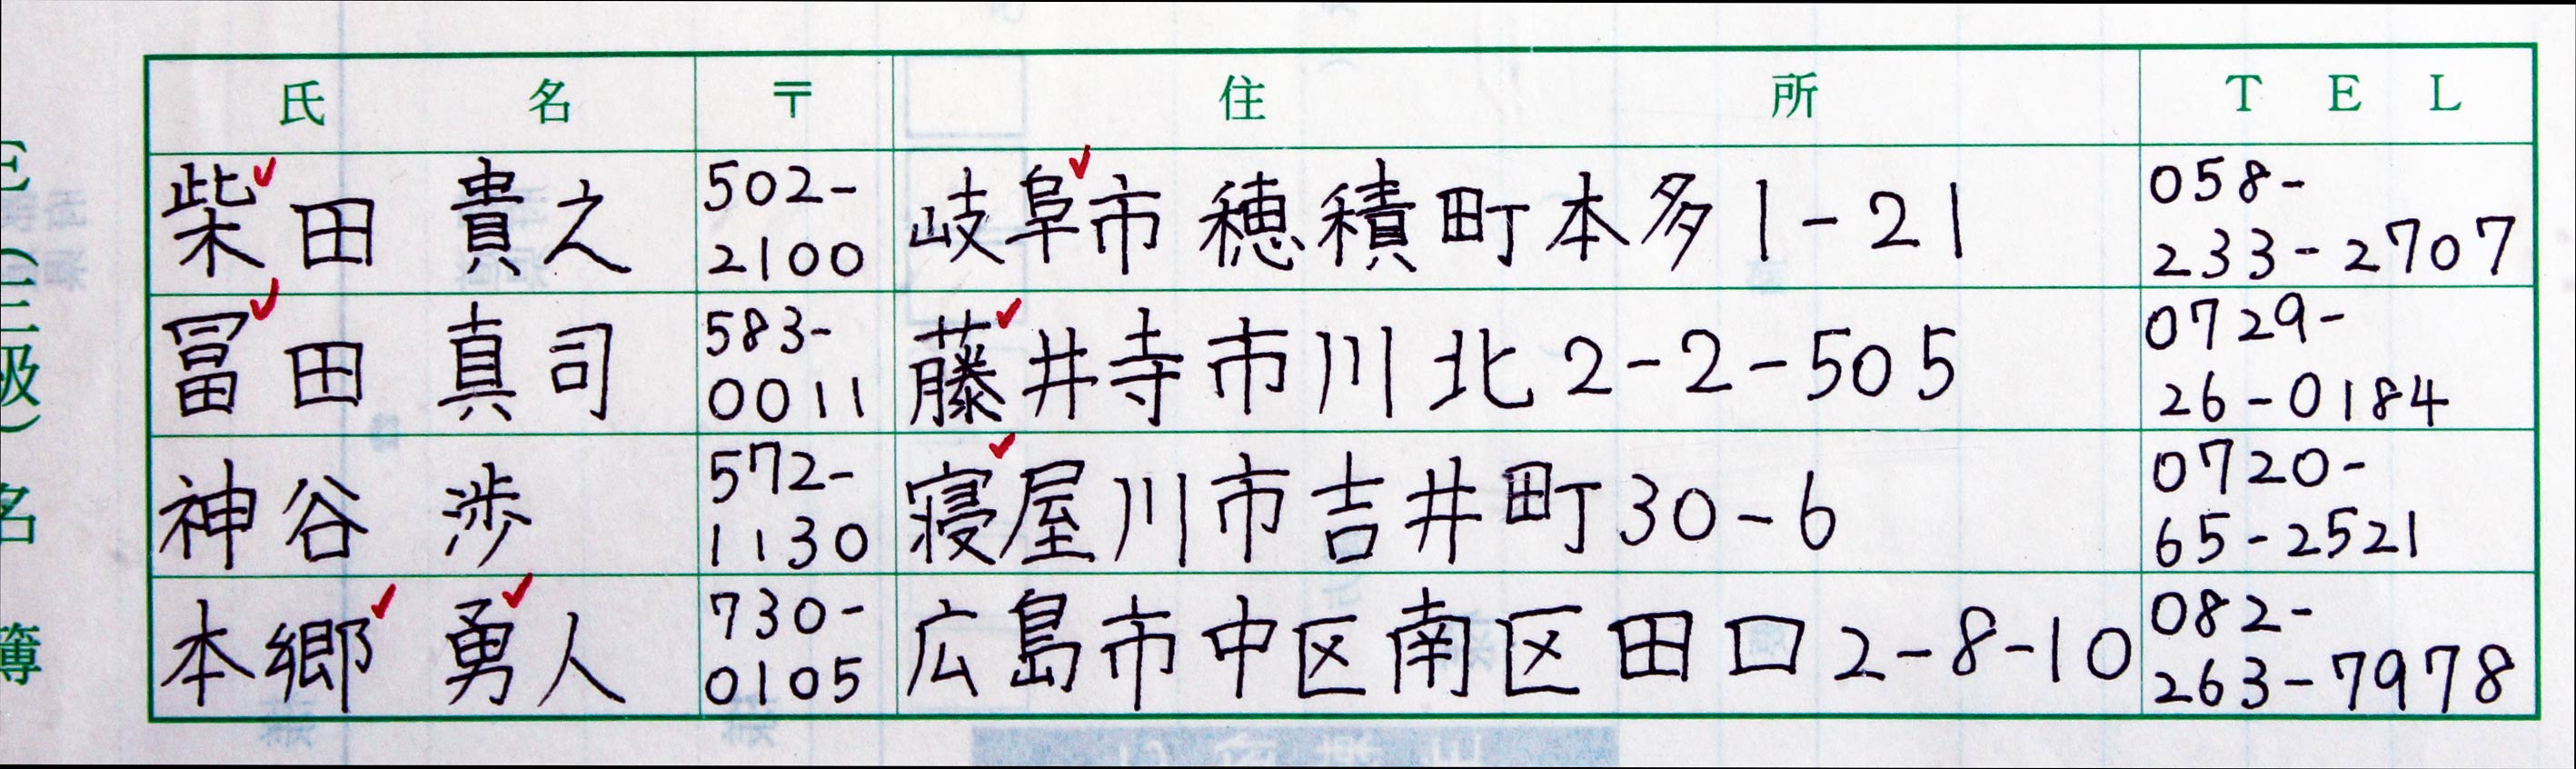 氏 名 〒 住 所 T E L
柴田 貴之 502-2100 岐阜市穂積町本多1-21 058-233-2707
冨田 真司 583-0011 藤井寺市川北2-2-505 0729-26-0184
神谷 渉 572-1130 寝屋川市吉井町30-6 0720-65-2521
本郷 勇人 730-0105 広島市中区南区田口2-8-10 082-263-7978
(三級)名簿